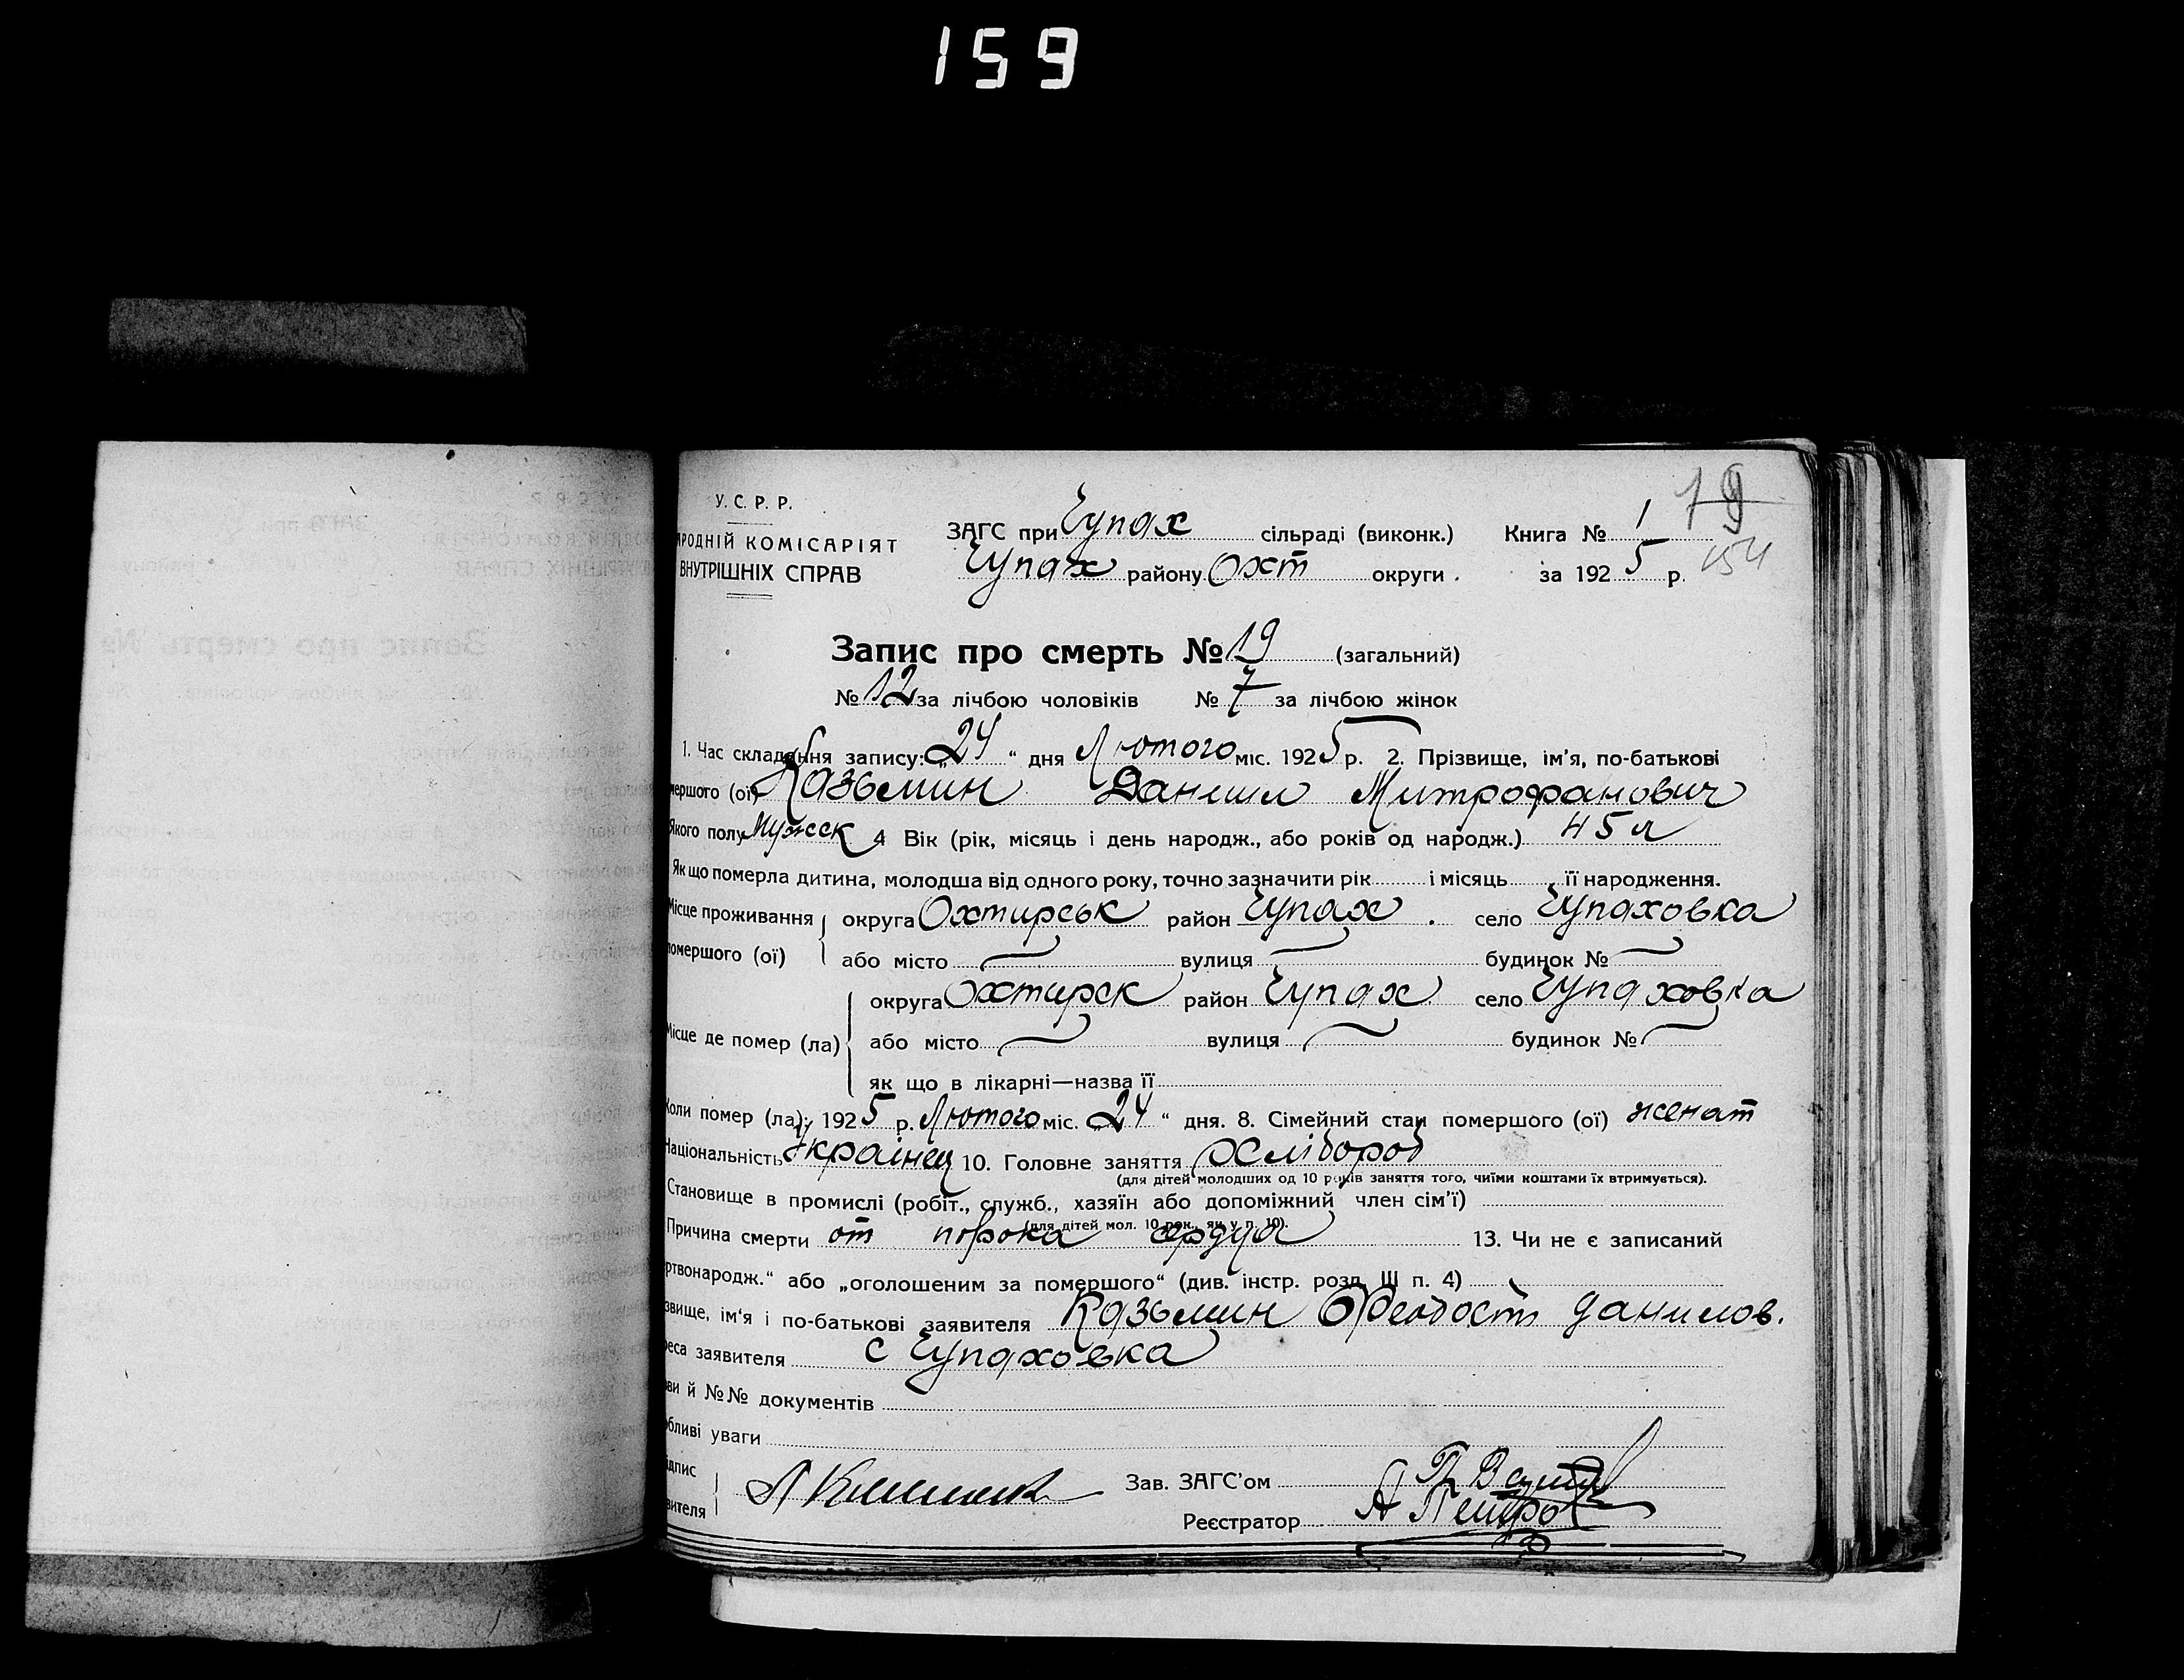 159
У. С. Р. Р.
РОДНІЙ КОМІСАРІЯТ
ВНУТРІШНІХ СПРАВ
ЗАГС при Чупах сільраді (виконк.) Книга № 1 19
Чупах району Охт округи. за 1925 р. 154
Запис про смерть № 19 (загальний)
№ 12 за лічбою чоловіків № 7 за лічбою жінок
1. Час складання запису: „24“ дня Лютого міс. 1925 р. 2. Прізвище, ім'я, по-батькові
мершого (ої) Казьмин Даниил Митрофанович
Якого полу Мужск 4 Вік (рік, місяць і день народж., або років од народж.) 45 л
Як що померла дитина, молодша від одного року, точно зазначити рік і місяць її народження.
Місце проживання округа Охтирськ район Чупах. село Чупаховка
померщого (ої) або місто вулиця будинок №
округа Охтирск район Чупах село Чупаховка
Місце де помер (ла) або місто вулиця будинок №
як що в лікарні—назва її
Коли помер (ла): 1925 р. Лютого міс. „24“ дня. 8. Сімейний стан помершого (ої) женат
Національність Українец 10. Головне заняття Хлібороб
(для дітей молодших од 10 років заняття того, чиїми коштами їх втримується).
Становище в промислі (робіт., служб., хазяїн або допоміжний член сім'ї)
(для дітей мол. 10 рок., як у п. 10).
Причина смерти от порока сердца 13. Чи не є записаний
ртвонародж.“ або „оголошеним за помершого“ (див. інстр. розд. III п. 4)
звище, ім'я і по-батькові заявителя Казьмин Феодост Данилов.
реса заявителя с Чупаховка
ви й №№ документів
бливі уваги
ідпис
вителя
Зав. ЗАГС'ом
Реєстратор А Петро